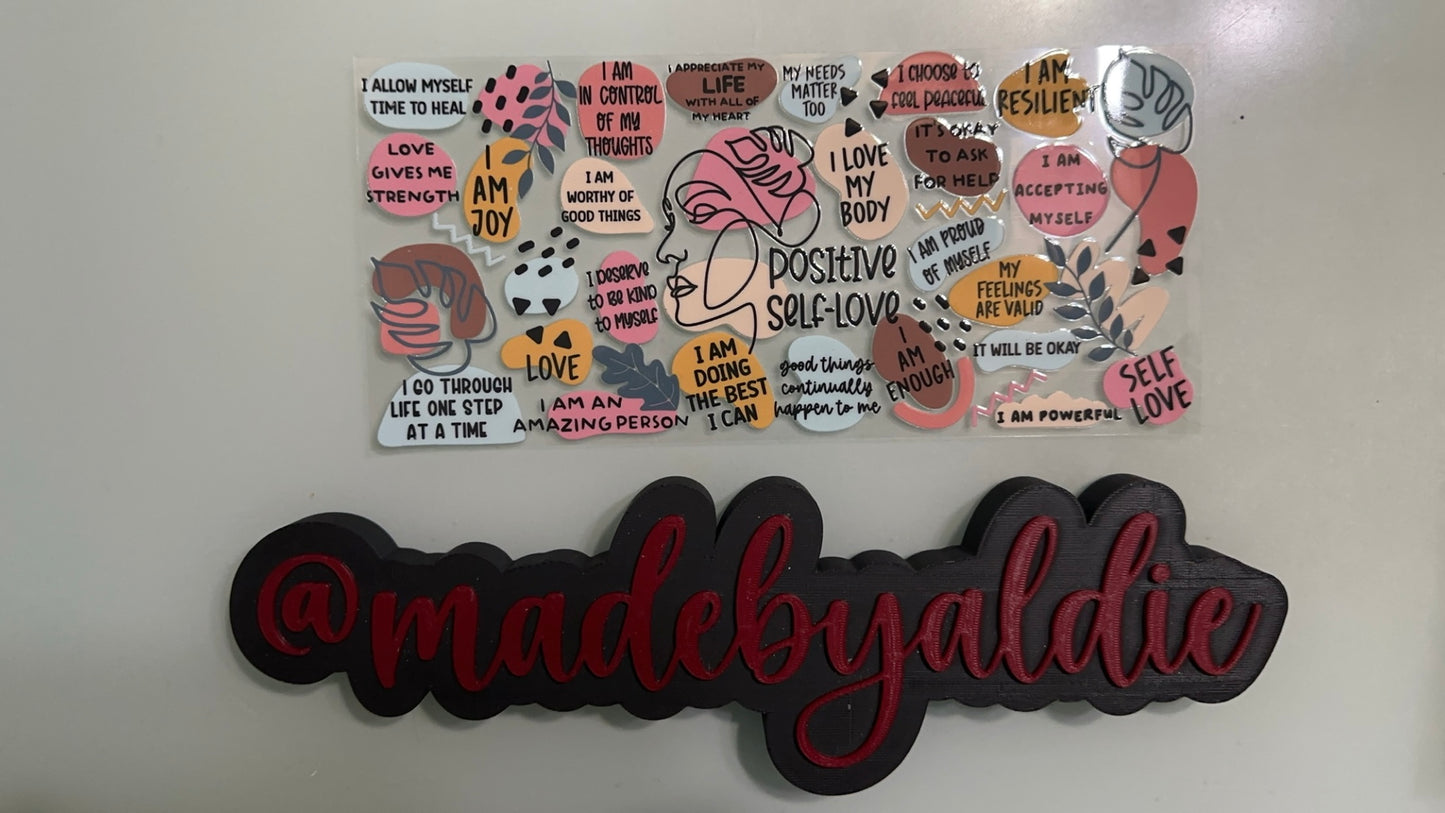 I ALLOW MYSELF
TIME TO HEAL
I AM
IN CONTROL
OF MY
THOUGHTS
I APPRECIATE MY
LIFE
WITH ALL OF
MY HEART
MY NEEDS
MATTER
TOO
I CHOOSE to
feel peaceful
I AM
RESILIENT
LOVE
GIVES ME
STRENGTH
I
AM
JOY
I AM
WORTHY OF
GOOD THINGS
I LOVE
MY
BODY
IT'S OKAY
TO ASK
FOR HELP
I AM
ACCEPTING
MYSELF
I DESERVE
to BE KIND
to MYSELF
POSITIVE
SELF-LOVE
I AM PROUD
OF MYSELF
MY
FEELINGS
ARE VALID
LOVE
I AM
DOING
THE BEST
I CAN
good things
continually
happen to me
I
AM
ENOUGH
IT WILL BE OKAY
SELF
LOVE
I GO THROUGH
LIFE ONE STEP
AT A TIME
I AM AN
AMAZING PERSON
I AM POWERFUL
@madebyaldie